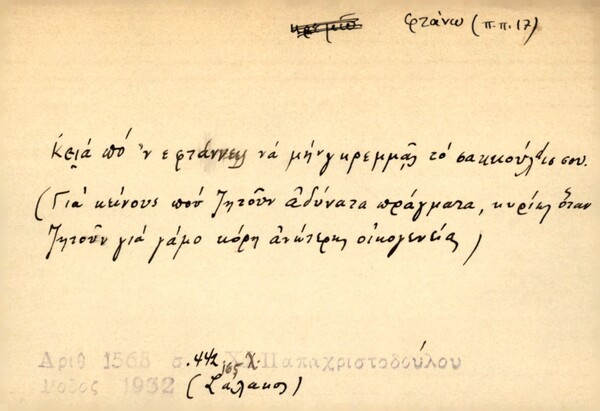 φτάνω (π.π. 17)
Κεῖά πό 'ν εφτάννεις νά μήνγκρεμμᾷς τό σακκούλ'ις σου.
(Γιά κείνους πού ζητοῦν ἀδύνατα πράγματα, κυρίως ὅταν
ζητοῦν γιά γάμο κόρη ἀνώτερης οἰκογενείας)
Αριθ 1568 σ. 442 Χ. Παπαχριστοδούλου
165
Ροδος 1932 (Σάλακος)